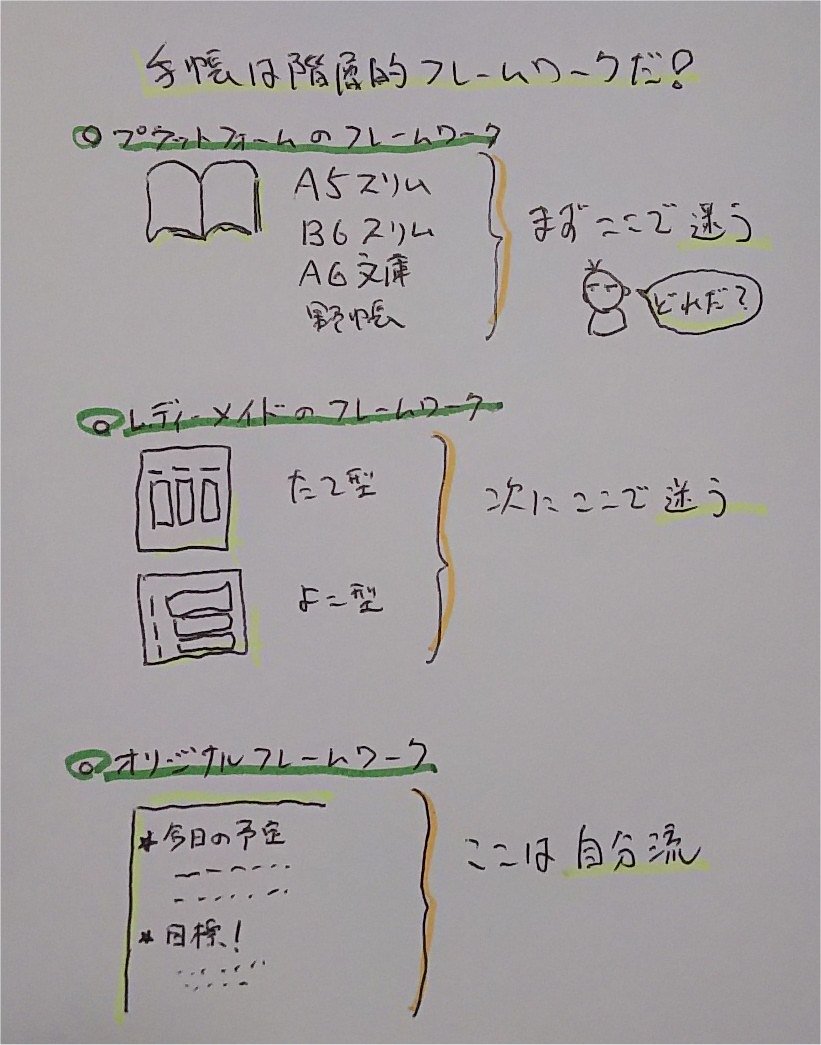 手帳は階層的フレームワークだ!
プラットフォームのフレームワーク
A5スリム
B6スリム
A6文庫
野帳
まずここで迷う
どれだ?
レディーメイドのフレームワーク
たて型
よこ型
次にここで迷う
オリジナルフレームワーク
*今日の予定
*目標!
ここは自分流